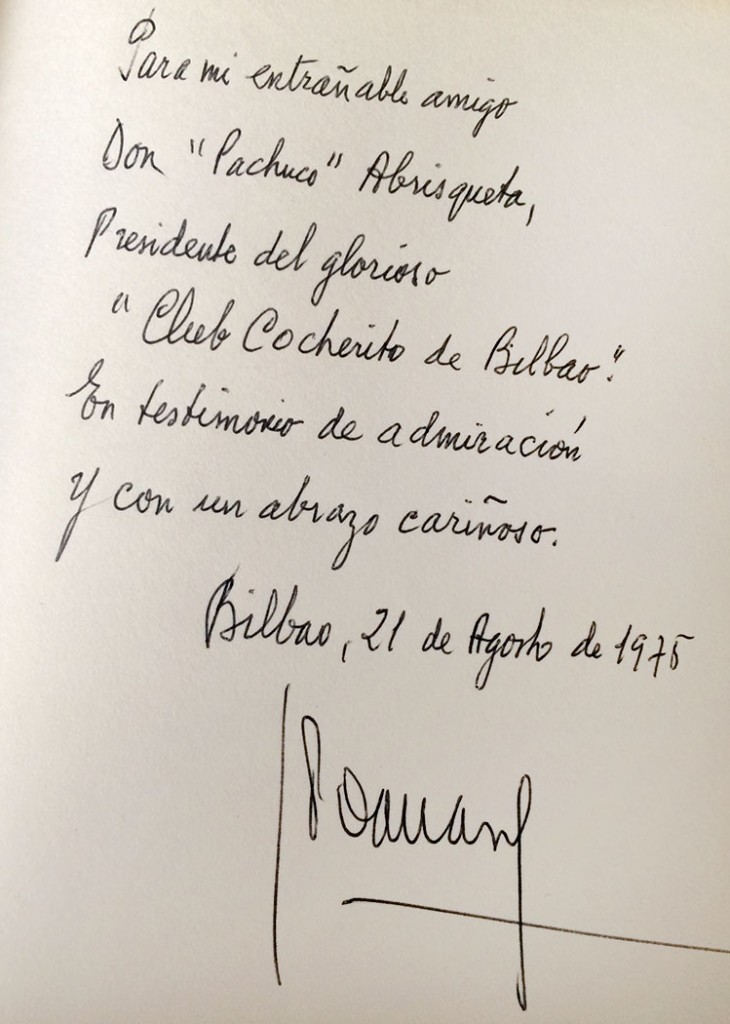 Para mi entrañable amigo
Don "Pachuco" Abrisqueta,
Presidente del glorioso
"Club Cocherito de Bilbao".
En testimonio de admiración
Y con un abrazo cariñoso.
Bilbao, 21 de Agosto de 1975